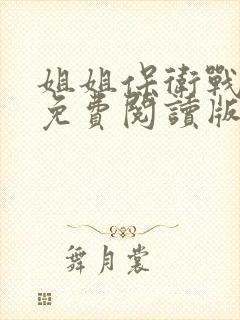 姐姐保衛戰
免費閱讀版
舞月裳